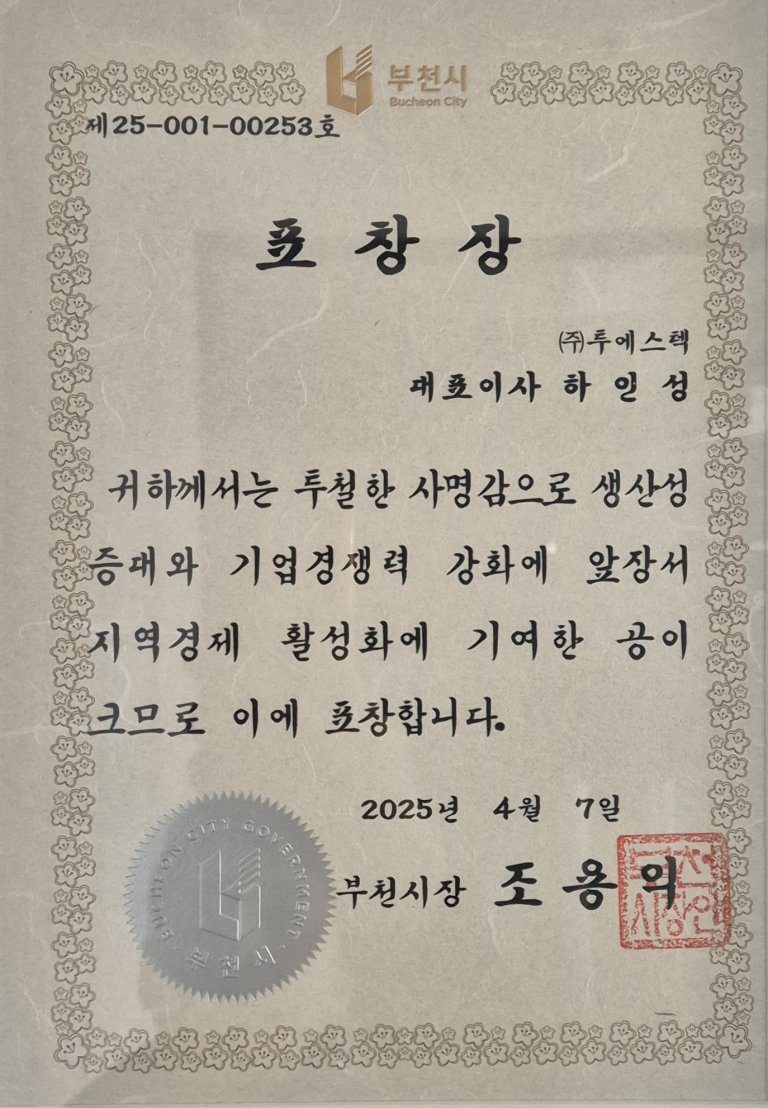 부천시
Bucheon City
제25-001-00253호
표 창 장
㈜투에스텍
대표이사 하 인 성
귀하께서는 투철한 사명감으로 생산성
증대와 기업경쟁력 강화에 앞장서
지역경제 활성화에 기여한 공이
크므로 이에 표창합니다.
2025년 4월 7일
부천시장 조 용 익
부천
시장인
BUCHEON CITY GOVERNMENT
부천시